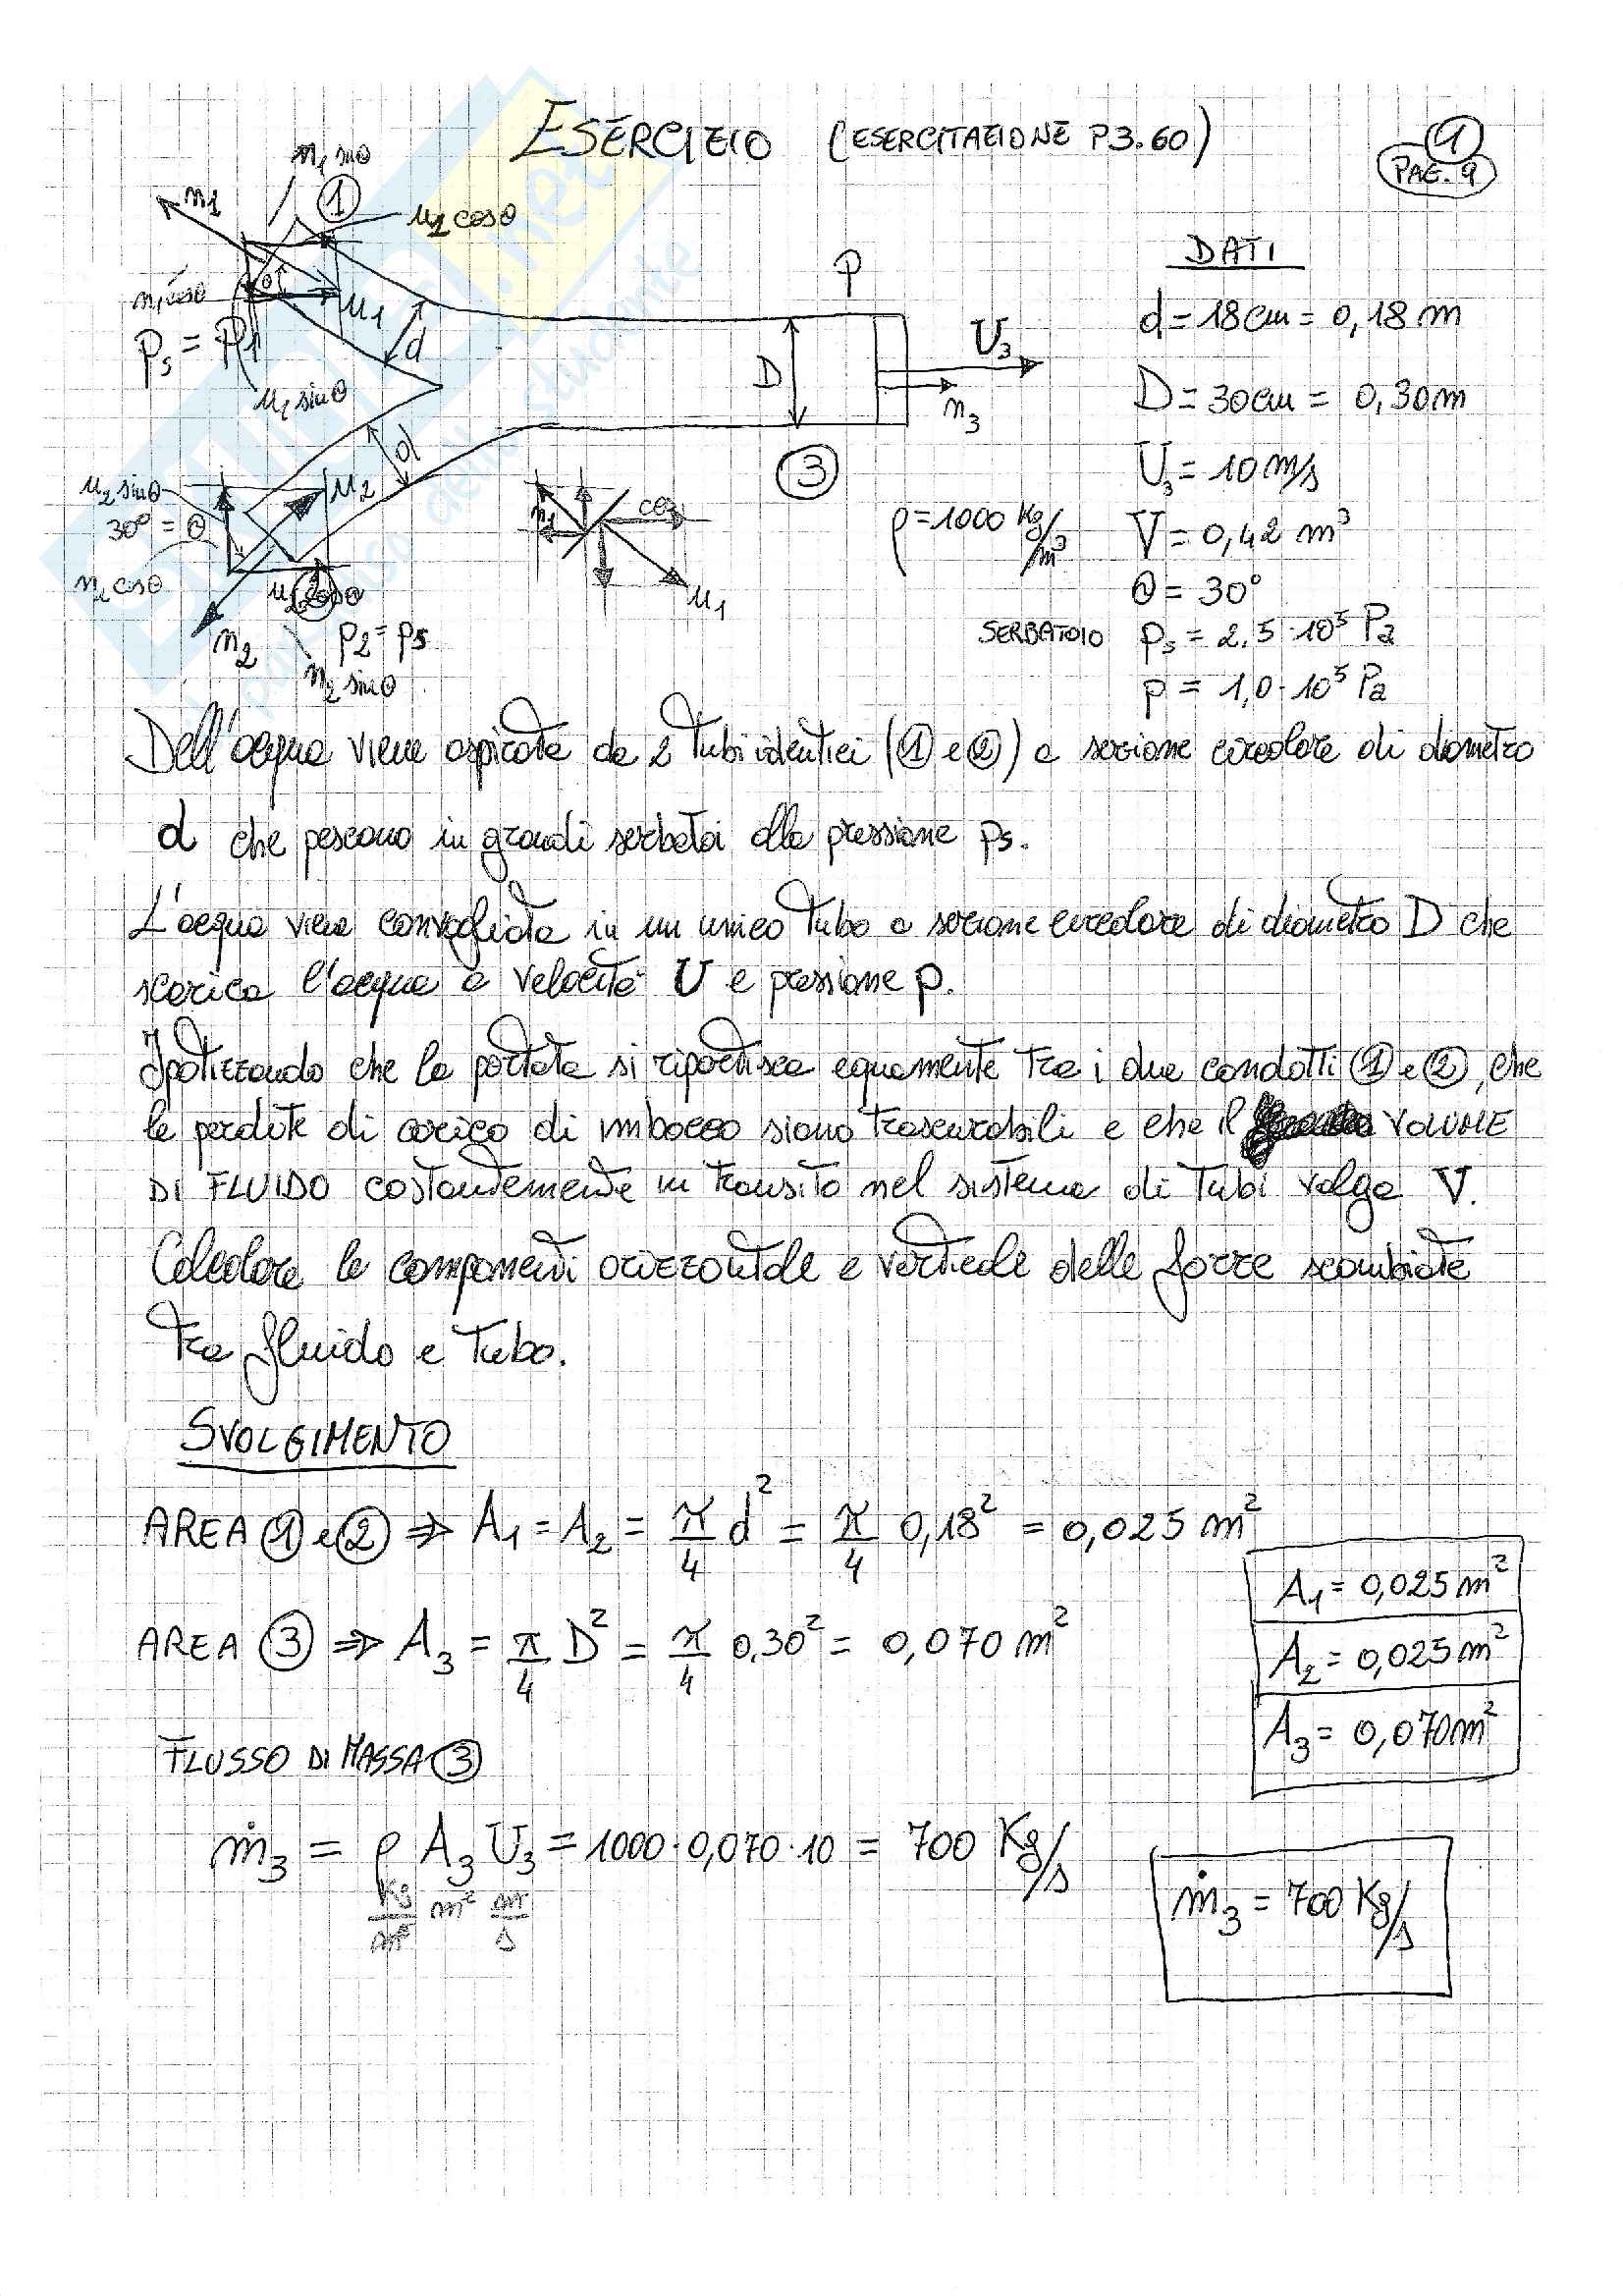 ESERCIZIO (ESERCITAZIONE P3.60)
1
PAG. 9
n1 sinθ
n1
1
u1 cosθ
n1 cosθ
u1
Ps = P1
d
u1 sinθ
P
D
U3
n3
3
DATI
d = 18 cm = 0,18 m
D = 30 cm = 0,30 m
U3 = 10 m/s
ρ = 1000 Kg/m³
V = 0,42 m³
θ = 30°
SERBATOIO ps = 2.5·10⁵ Pa
p = 1,0·10⁵ Pa
u2 sinθ
u2
d
30° = θ
n2 cosθ
n2
p2 = ps
n2 sinθ
n1
u1
Dell'acqua viene aspirata da 2 tubi identici (① e ②) a sezione circolare di diametro
d che pescano in grandi serbatoi alla pressione ps.
L'acqua viene convogliata in un unico tubo a sezione circolare di diametro D che
scarica l'acqua a velocità U e pressione p.
Ipotizzando che la portata si ripartisca equamente tra i due condotti ① e ②, che
le perdite di carico di imbocco siano trascurabili e che il VOLUME
DI FLUIDO costantemente in transito nel sistema di tubi valga V.
Calcolare le componenti orizzontale e verticale delle forze scambiate
tra fluido e tubo.
SVOLGIMENTO
AREA ① e ② ⇒ A1 = A2 = π/4 d² = π/4 0,18² = 0,025 m²
A1 = 0,025 m²
AREA ③ ⇒ A3 = π/4 D² = π/4 0,30² = 0,070 m²
A2 = 0,025 m²
A3 = 0,070 m²
FLUSSO DI MASSA ③
ṁ3 = ρ A3 U3 = 1000·0,070·10 = 700 Kg/s
Kg/m³ m² m/s
ṁ3 = 700 Kg/s